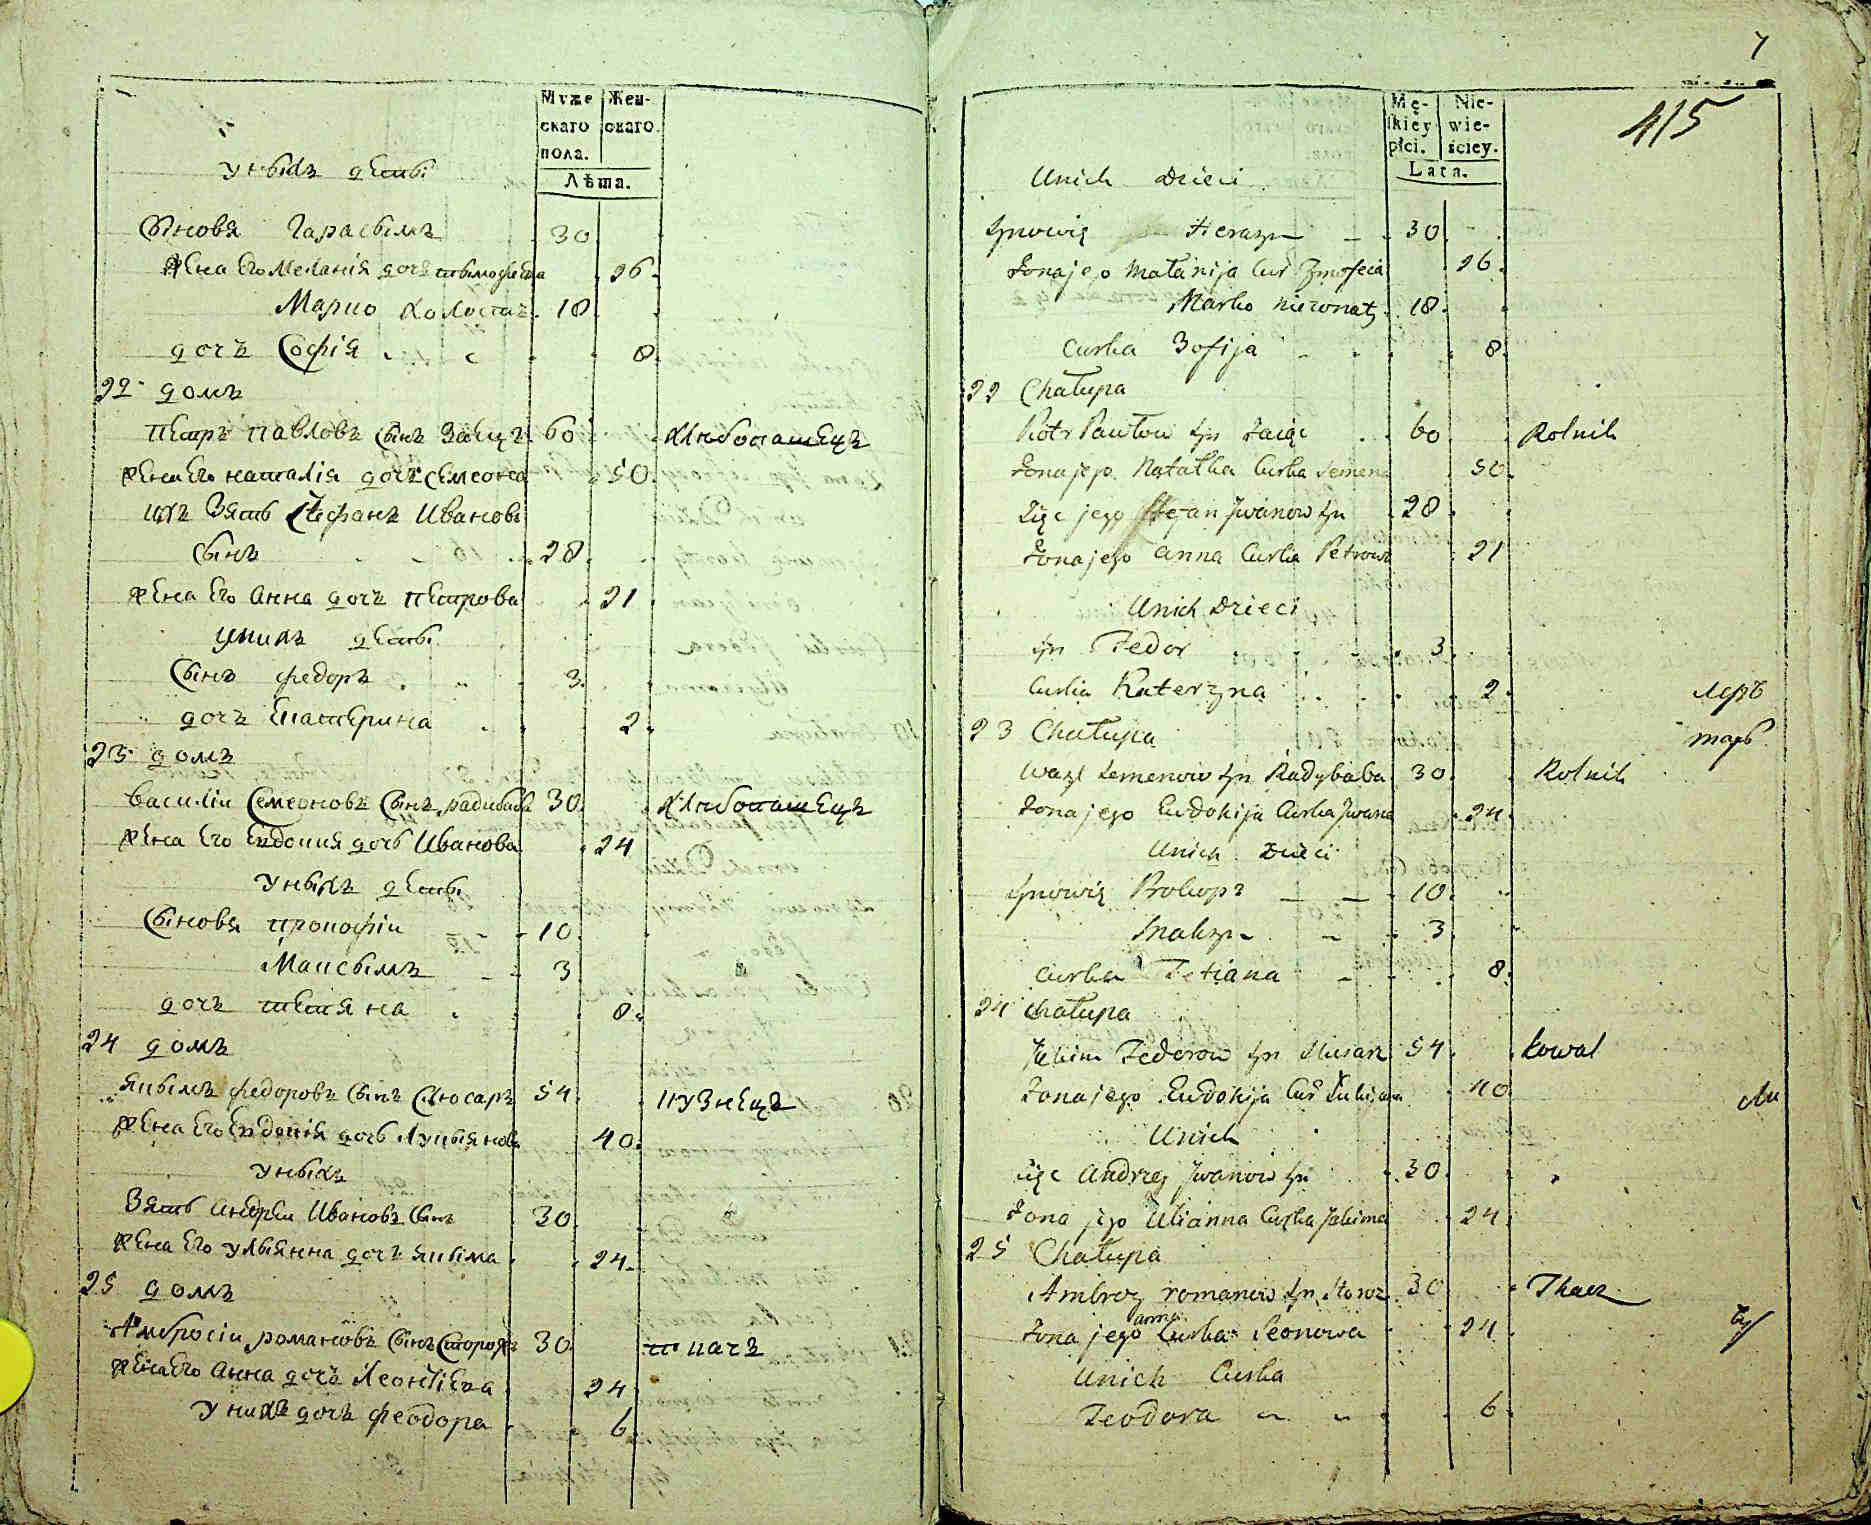 Муже
скаго
пола.
Жен-
скаго.
Лѣта.
Уныхъ дети
Сыновя Гарасымъ 30
Жена Его Меланія дочь тымофеева 26
Марко холостъ 18
дочъ Софія 8
22 домъ
Петръ Павловъ Сынъ Заецъ 60 Хлибопашецъ
Жена Его наталія дочъ Семеона 50
ихъ Зять Стефанъ Ивановъ
Сынъ 28
Жена Его Анна дочъ Петрова 21
Унихъ дети
Сынъ федоръ 3
дочъ Екатерина 2
23 домъ
Василіи Семеоновъ Сынъ радибаба 30 Хлибопашецъ
Жена Его Евдокия дочь Иванова 24
Уныхъ дети
Сыновя прокофіи 10
Максымъ 3
дочъ тетяна 8
24 домъ
якымъ федоровъ Сынъ Слюсаръ 54 кузнецъ
Жена Его Евдокія дочь Лукыянова 40
Уныхъ
Зять Андреи Ивановъ Сынъ 30
Жена Его Ульянна дочъ якыма 24
25 домъ
Амбросіи романовъ Сынъ Сторожъ 30 ткачъ
Жена Его Анна дочъ Леонтіева 24
У нихъ дочъ феодора 6
7
415
Mę-
skiey
płci.
Nie-
wie-
ściey.
Lata.
Unich Dzieci
Synowie Herasym 30
Żona jego Małanija Cur Tymofeia 26
Marko nieżonaty 18
Curka Zofija 8
22 Chałupa
Piotr Pawłow Syn Zaiąc 60 Rolnik
Żona jego Natałka Curka Semena 50
Zięc jego Stefan Jwanow Syn 28
Żona jego Anna Curka Petrowa 21
Unich Dzieci
Syn Fedor 3
Curka Katerzyna 2
23 Chałupa
Wasyl Semenow Syn Radybaba 30 Rolnik
Żona jego Eudokija Curka Jwana 24
Unich Dzieci
Synowie Prokop 10
Maksym 3
Curka Tetiana 8
24 Chałupa
Jakim Fedorow Syn Slusarz 54 Kowal
Żona jego Eudokija Cur Łukijana 40
Unich
Zięc Andrzey Jwanow Syn 30
Żona jego Ulianna Curka Jakima 24
25 Chałupa
Ambroży romanow Syn Storoż 30 Tkacz
Anna
Żona jego Curka Leonowa 24
Unich Curka
Feodora 6